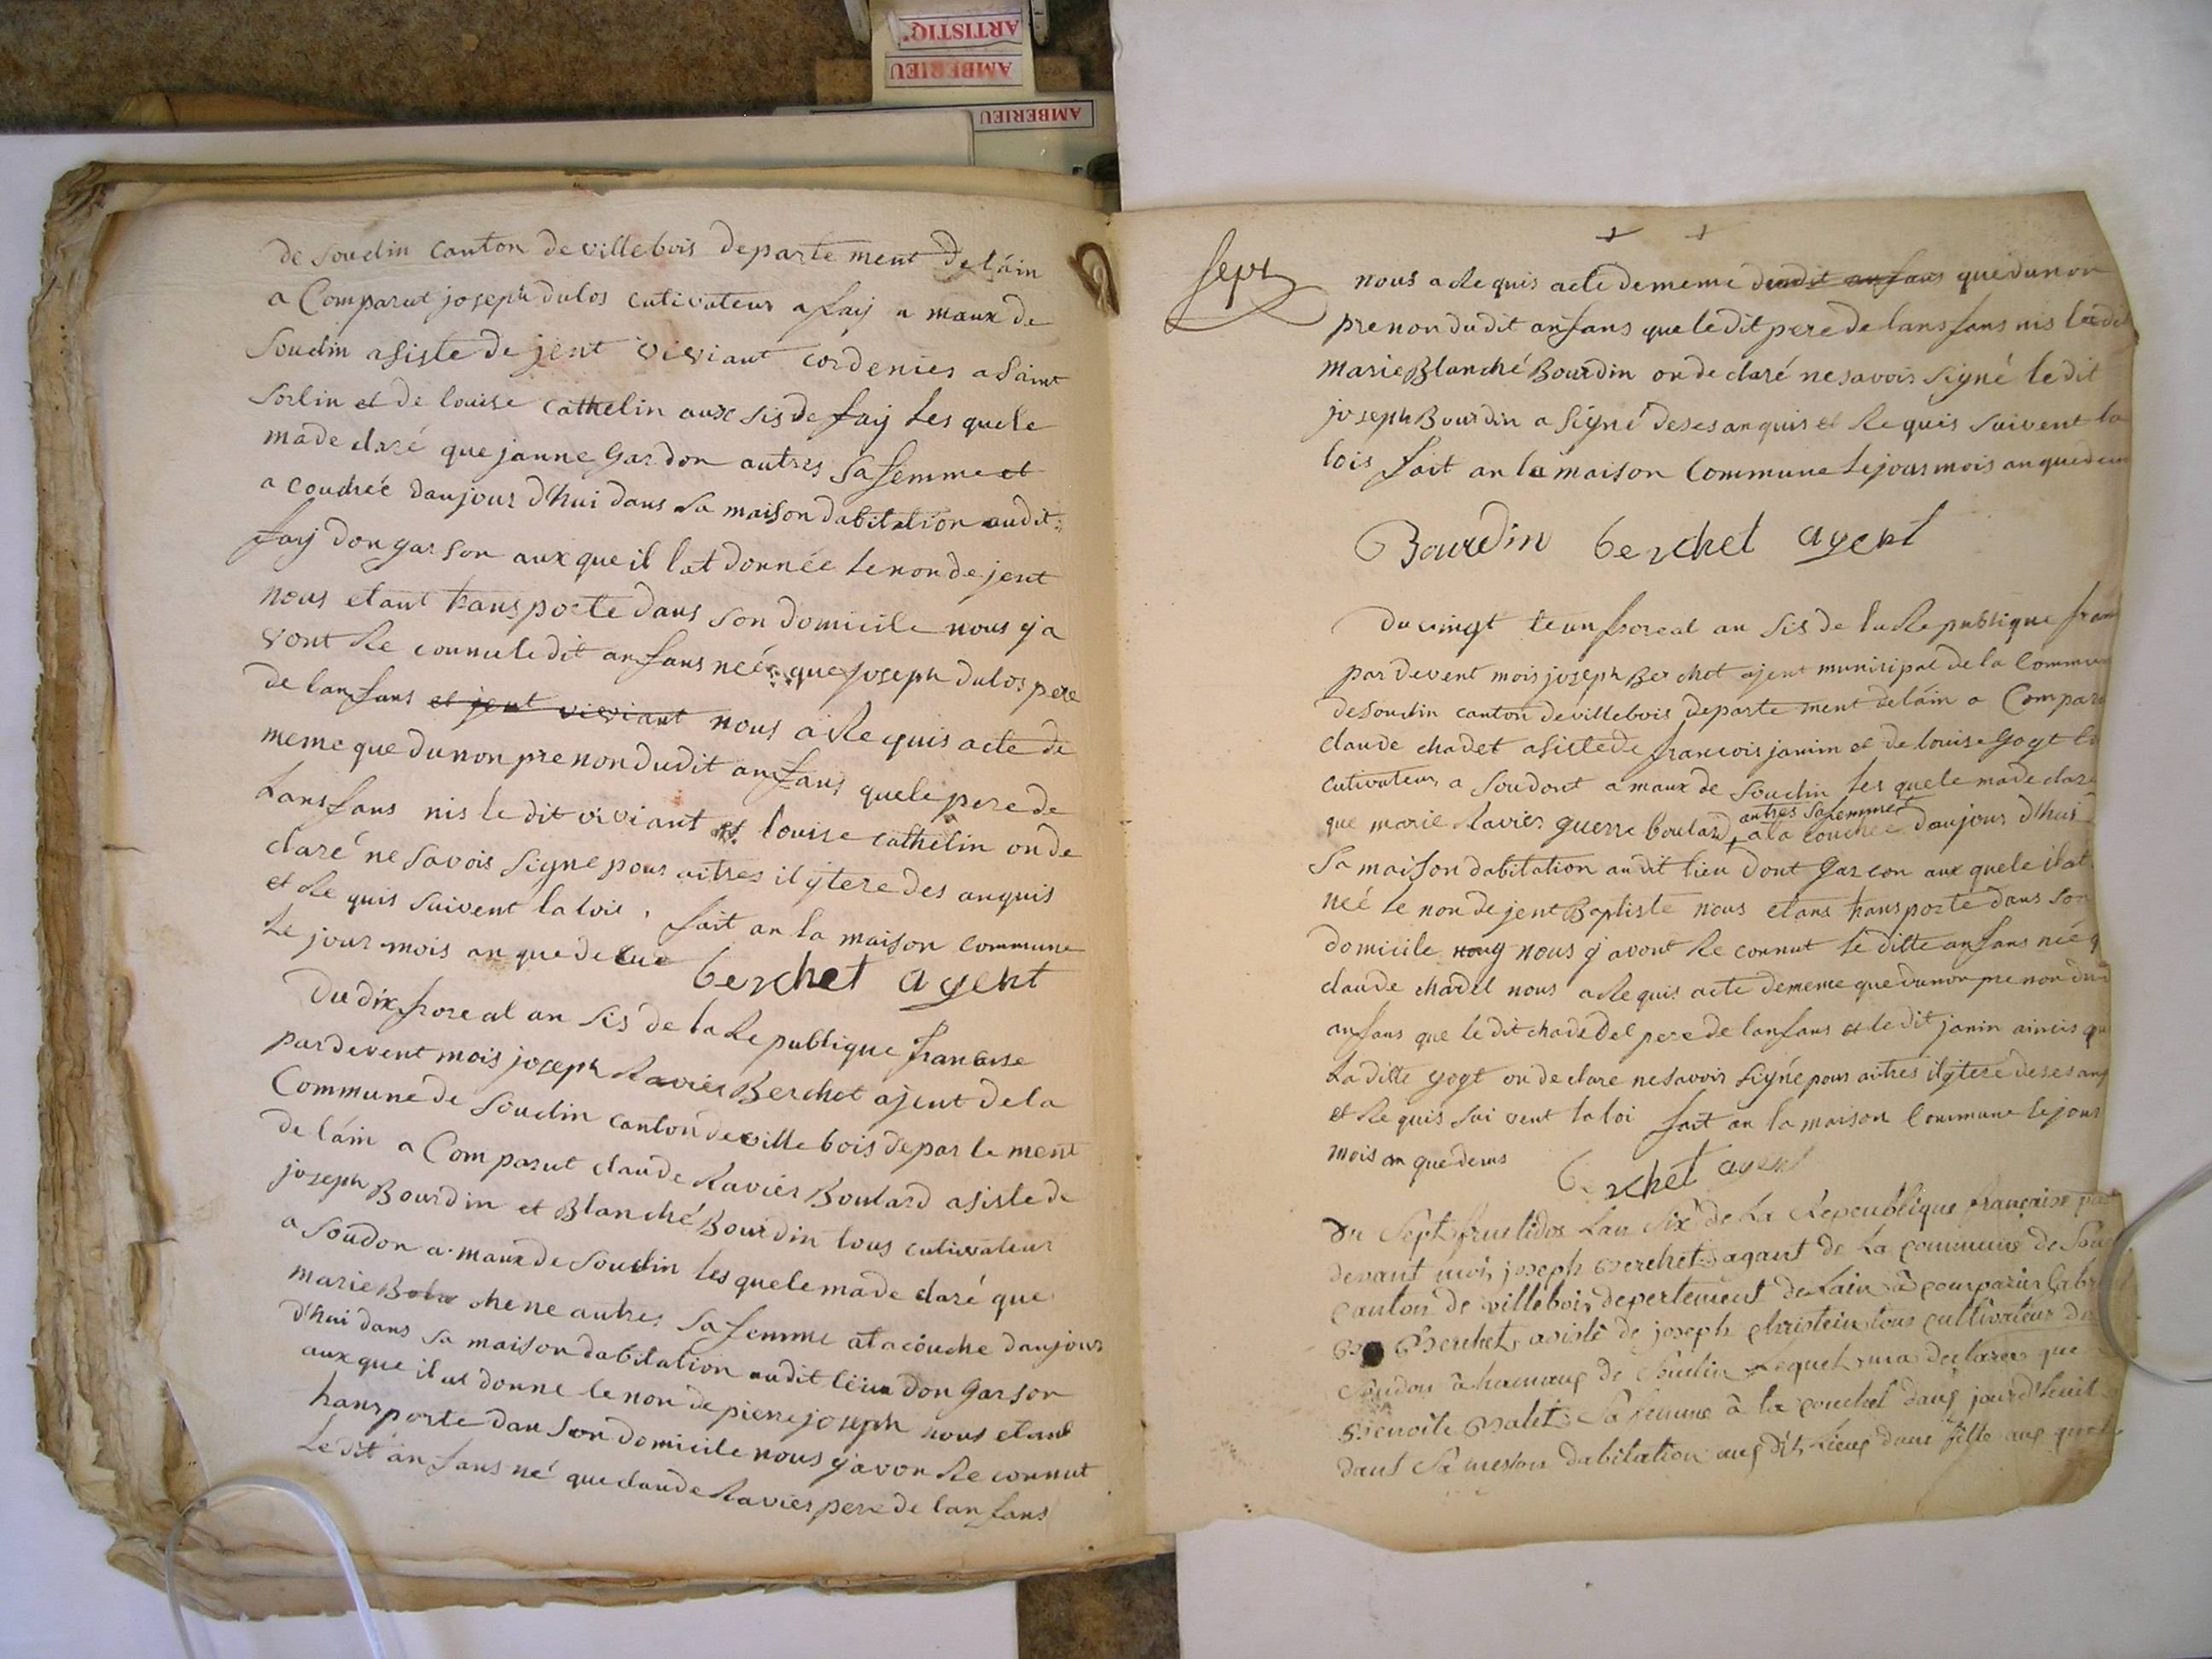 ARTISTIQ'
AMBERIEU
AMBERIEU
de soudin canton de villebois departe ment de láin
a Comparut joseph dulos cutivateur a fay a maux de
Soudin asiste de jent viviant cordenies a Saint
Sorlin et de louise cathelin aux sis de fay les quele
ma de claré que janne Gardon autres sa femme et
a couchéé daujour d'hui dans sa maison dabitation audit
fay don garson aux que il lat donnée le non de jent
nous etant transporte dans son domicile nous y a
vont Re connu le dit anfans néé que joseph dulos pere
de lanfans et jent viviant nous a Requis acte de
meme que du non pre non du dit anfans que le pere de
Lansfans nis le dit viviant et louise cathelin on de
claré ne savois signe pour aitres il y tere des anquis
et Re quis suivent la loie, fait an la maison commune
Le jour mois an que de sus berchet agent
Du dix froreal an sis de la Re publique francise
par devent mois joseph Ravier Berchet ajent de la
Commune de Soudin canton de ville bois depar te ment
de láin a Comparut claude Ravier Boulard asiste de
joseph Bourdin et Blanché Bourdin tous cutivateur
a soudon a maux de Soudin les quele ma de claré que
marie chene autres sa femme at acouche daujour
d'hui dans sa maison dabitation audit lieu don Garson
aux que il at donne le non de pierre joseph nous etant
transporte dan son domicile nous y avon Re connut
Le dit anfans né que claude Ravier pere de lanfans
sept
nous a Re quis acte de meme dudit anfans que du non
pre non du dit anfans que le dit pere de lansfans nis la dit
marie Blanché Bourdin on de claré ne savoir signé le dit
joseph Bourdin a signé de ses anquis et Re quis suivent la
lois fait an la maison Commune le jour mois an que de
Bourdin berchet agent
Du vingt te un froreal an sis de la Re publique fran
par devent mois joseph Berchet ajent municipal de la Commun
de Soudin canton de villebois departe ment de láin a Compar
claude chadet asiste de francois janin et de louise gogt
cutivateur a soudont a maux de Soudin les quele ma de clare
autres sa femmet
que marie Ravier guerre boulard a la couchéé daujour d'hui
Sa maison dabitation audit lieu dont Garcon aux quele il at
néé le non de jent Baptiste nous etans transporte dans son
domicile noug nous y avont Re connut le ditte anfans néé q
claude chardel nous a Requis acte de meme que du non pre non du
anfans que le dit chardel pere de lanfans et le dit janin aincis qu
La ditte gogt on de clare ne savoir signé pour aitres il y tere de ses anq
et Re quis sui vent la loi fait an la maison Commune le jour
mois an que de sus
berchet agent
Du Sept fructidor Lan Six de La Republique française par
devant moi joseph Berchet agant de La commune de Sou
Canton de villebois depertement de Lain a comparus
Berchet, asisté de joseph christein tous cultivateur de
Soudon a hameaux de Soudin Lequel ma declaree que
Benoite Balet Sa femme à la couchel daux jourd'huit
dant Sa meson dabitation aux dit Lieux dune fille aux quele